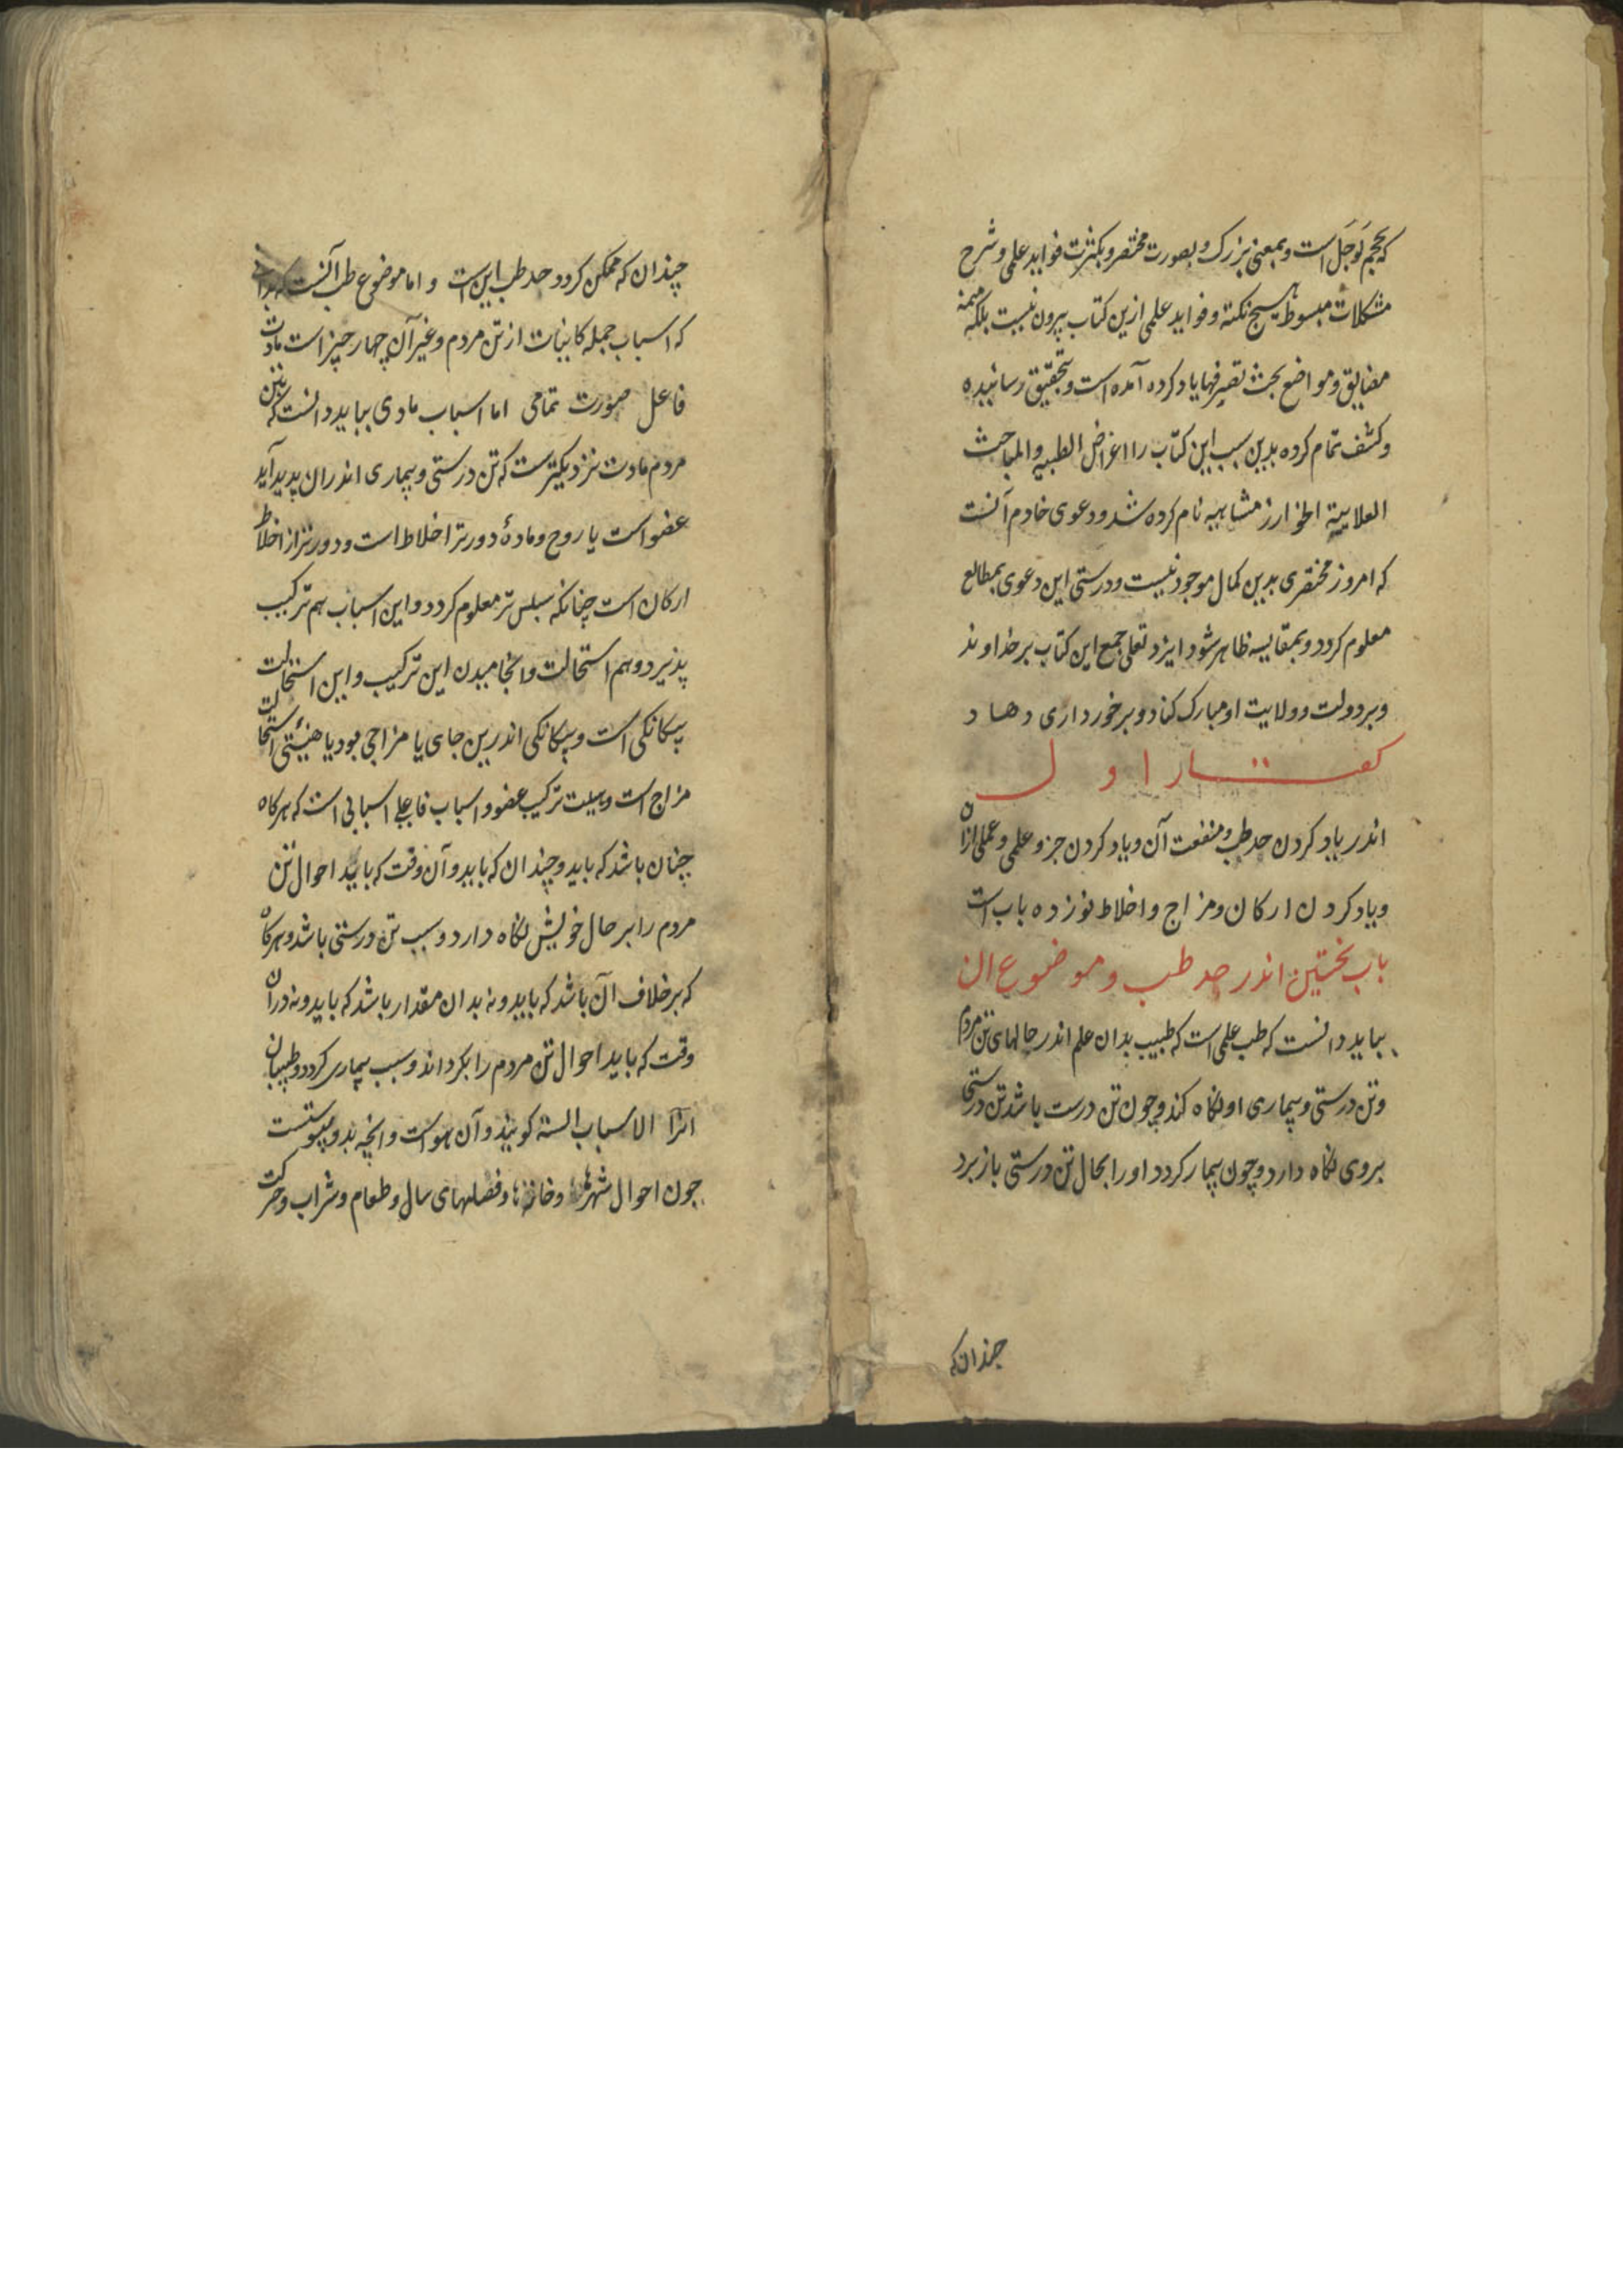 که بحجم کوچک است و بمعنی بزرک و بصورت مختصر و بکثرت فواید علمی و شرح
مشکلات مبسوط هیچ نکته و فواید علمی ازین کتاب بیرون نیست بلکه همه
مضایق و مواضع بحث یاد کرده آمده است و بتحقیق رسانیده
و کشف تمام کرده بدین سبب این کتاب را اغراض الطبیه و المباحث
العلاییة الخوارزمشاهیه نام کرده شد و دعوی خادم آنست
که امروز مختصری بدین کمال موجود نیست و درستی این دعوی بمطالع
معلوم کردد و بمقایسه ظاهر شود ایزد تعالی جمع این کتاب بر خداوند
و بر دولت و ولایت او مبارک کناد و برخورداری دهاد
کفتار اول
اندر یاد کردن حد طب و منفعت آن و یاد کردن جزو علمی و عملی ازان
و یاد کردن ارکان و مزاج و اخلاط نوزده باب است
باب نخستین اندر حد طب و موضوع ان
بباید دانست که طب علمی است که طبیب بدان علم اندر حالهای تن مردم
و تن درستی و بیماری او نکاه کند و چون تن درست باشد تن درستی
بر وی نکاه دارد و چون بیمار کردد او را بحال تن درستی باز برد
چندان که
چندان که ممکن کردد حد طب این است و اما موضوع طب آنست که
که اسباب جمله کاینات از تن مردم و غیر آن چهار چیز است مادت
فاعل صورت تمامی اما اسباب مادی بباید دانست که تن
مردم مادت نزدیکترست که تن درستی و بیماری اندران پدید آید
عضو است یا روح و مادۀ دورتر اخلاط است و دورتر از اخلاط
ارکان است چنانکه سپس تر معلوم کردد و این اسباب هم ترکیب
پذیرد و هم استحالت و انجامیدن این ترکیب و این استحالت
یکانکی است و یکانکی اندرین جای یا مزاجی بود یا هیئتی استحالت
مزاج است و هیئت ترکیب عضو و اسباب فاعلی اسبابی است که هرکاه
چنان باشد که باید و چندان که باید و آن وقت که باید احوال تن
مردم را بر حال خویش نکاه دارد و سبب تن درستی باشد و هرکاه
که بر خلاف آن باشد که باید و نه بدان مقدار باشد که باید و نه دران
وقت که باید احوال تن مردم را بکرداند و سبب بیماری کردد و طبیبان
انرا الاسباب الستة کویند و آن هواست و انچه بدو پیوستست
چون احوال شهرها و خانها و فصلهای سال و طعام و شراب و حرکت